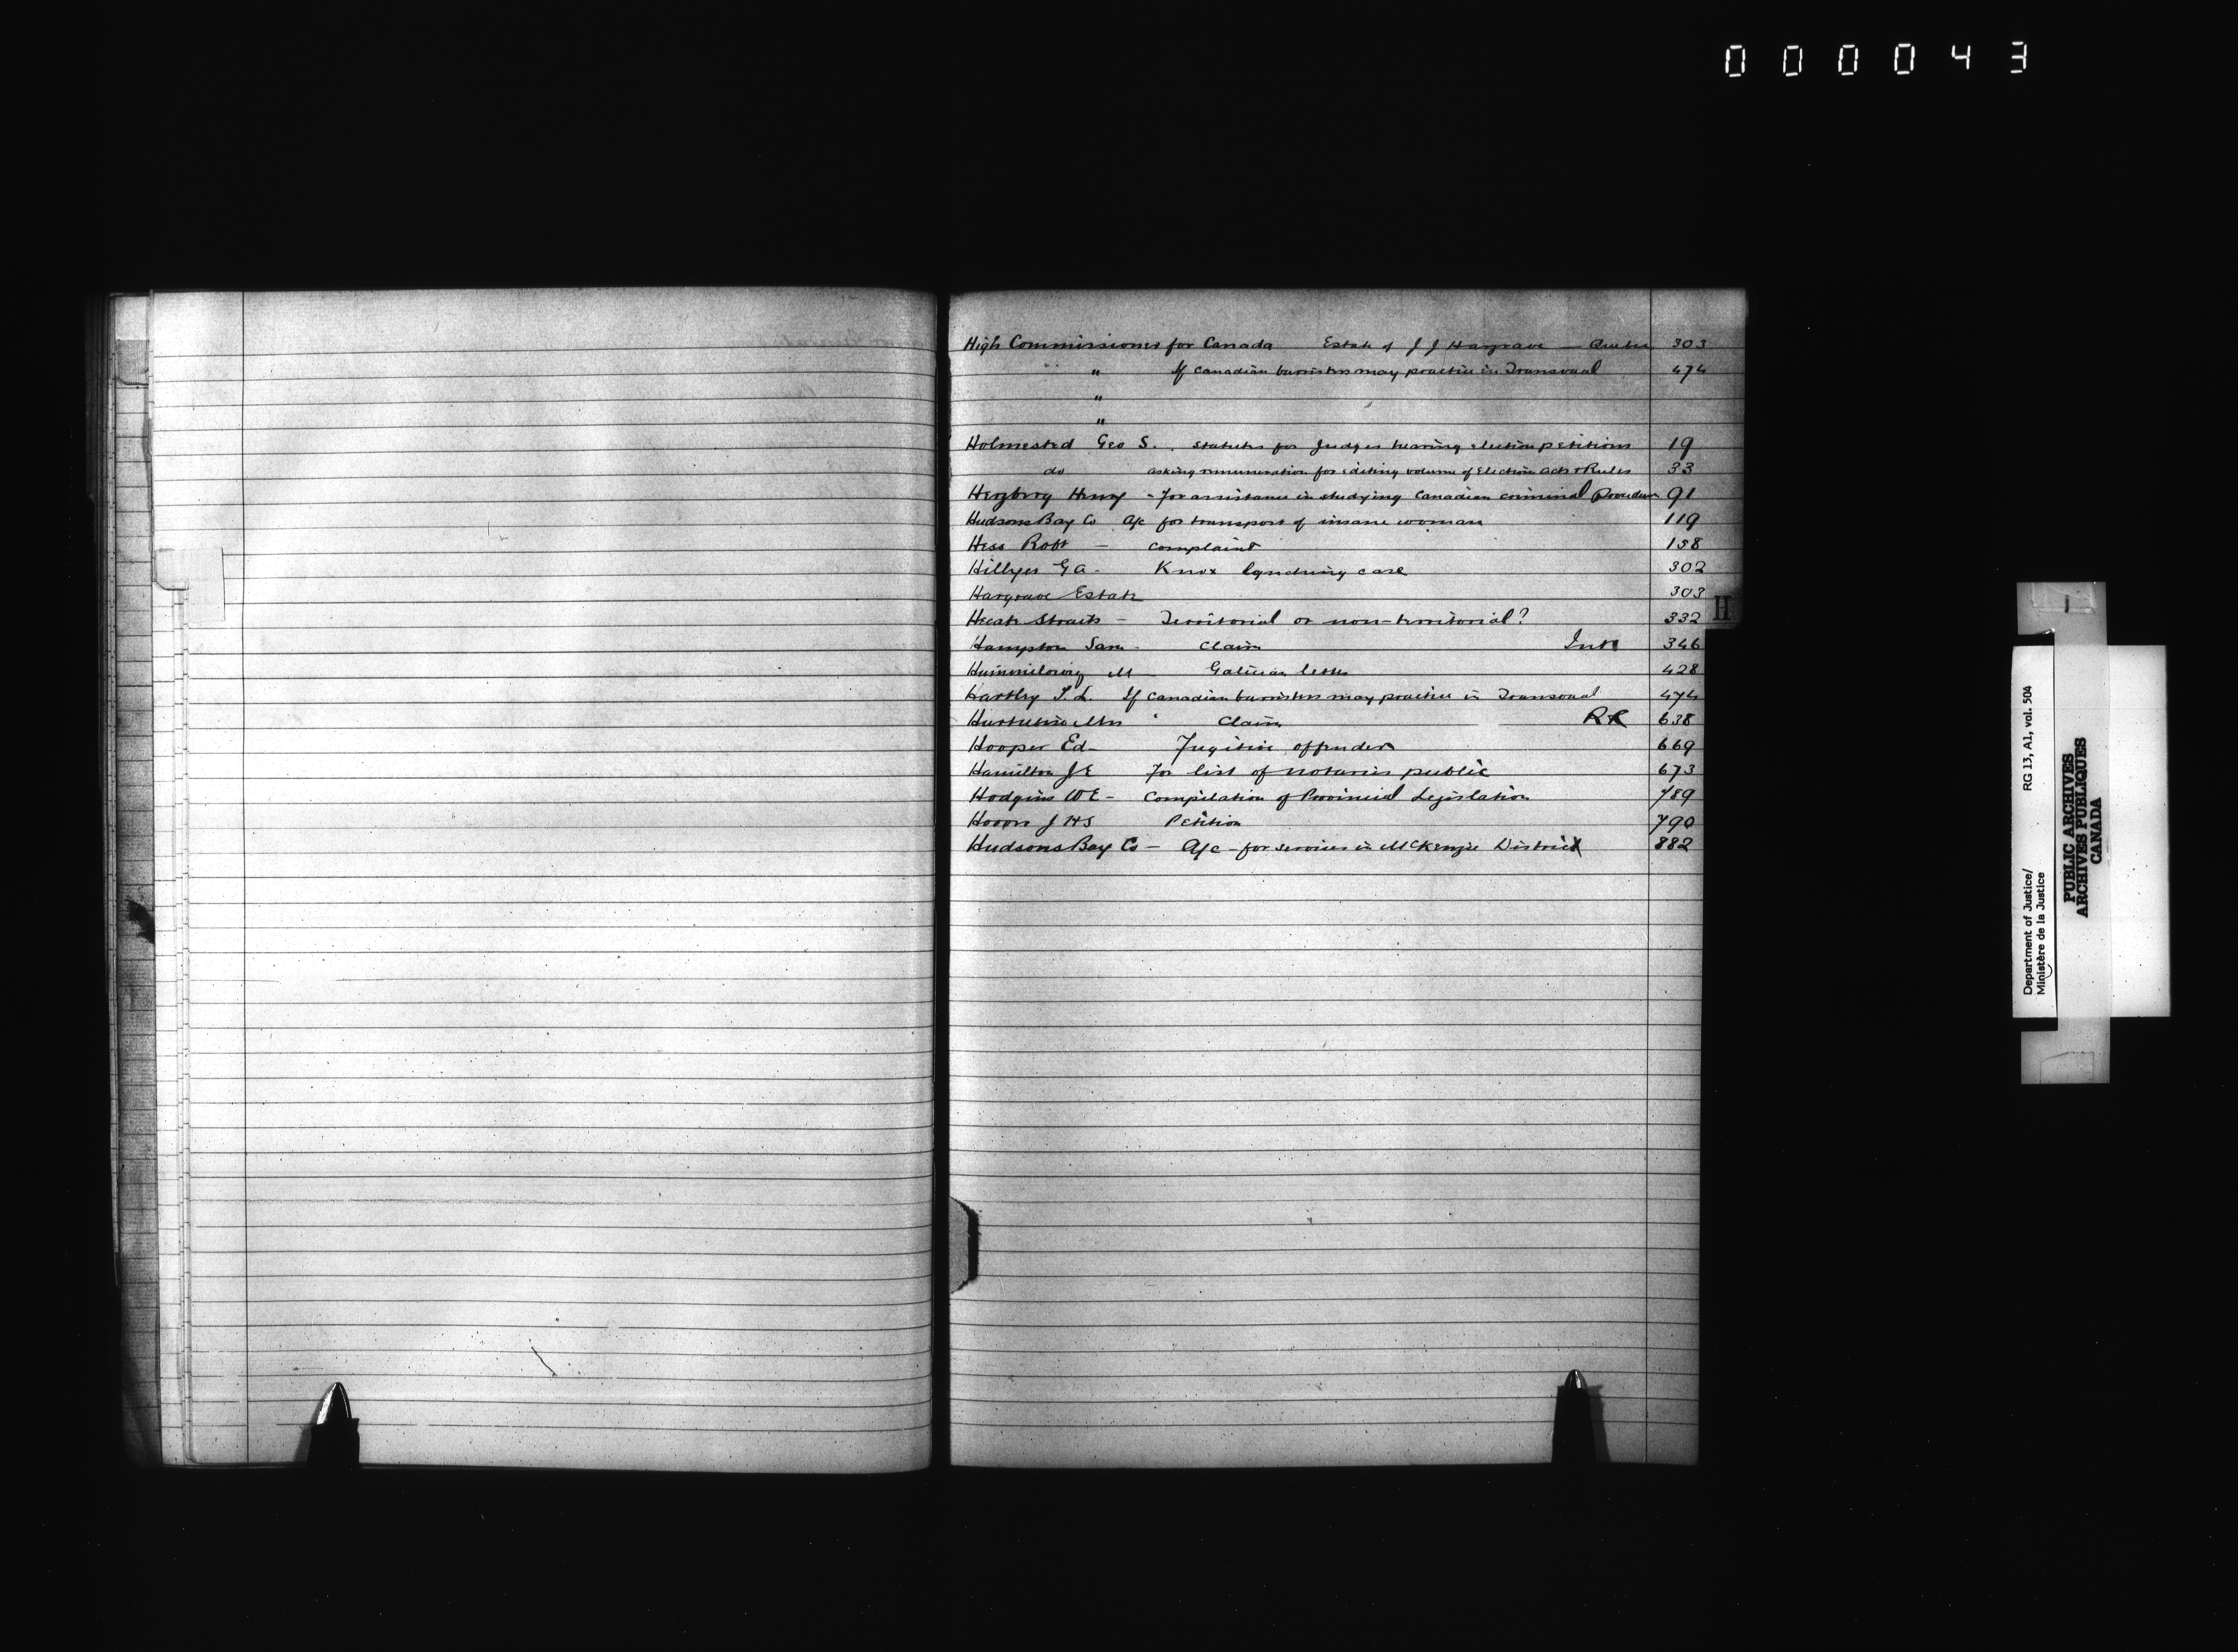 000043
High Commissioner for Canada Estate of J J Hargrave — Quebec 303
" If Canadian barristers may practice in Transvaal 474
"
"
Holmested Geo S. Statutes for Judges hearing election petitions 19
do asking remuneration for editing volume of Election Acts & Rules 33
Herzberg Henry - for assistance in studying Canadian criminal Procedure 91
Hudsons Bay Co A/c for transport of insane woman 119
Hess Robt — Complaint 158
Hillyer G A - Knox lynching case 302
Hargrave Estate 303
Hecate Straits - Territorial or non-territorial? 332
Hampton Sam - Claim Int 346
M — Galician letter 428
Hartley T. L. If Canadian barristers may practice in Transvaal 474
Mrs Claim RR 638
Hooper Ed - Fugitive offender 669
Hamilton J E For list of notaries public 673
Hodgins W E - Compilation of Provincial Legislation 789
J H S Petition 790
Hudsons Bay Co — A/c - for services in McKenzie District 882
H
Department of Justice/
Ministère de la Justice
RG 13, A1, vol. 504
PUBLIC ARCHIVES
ARCHIVES PUBLIQUES
CANADA